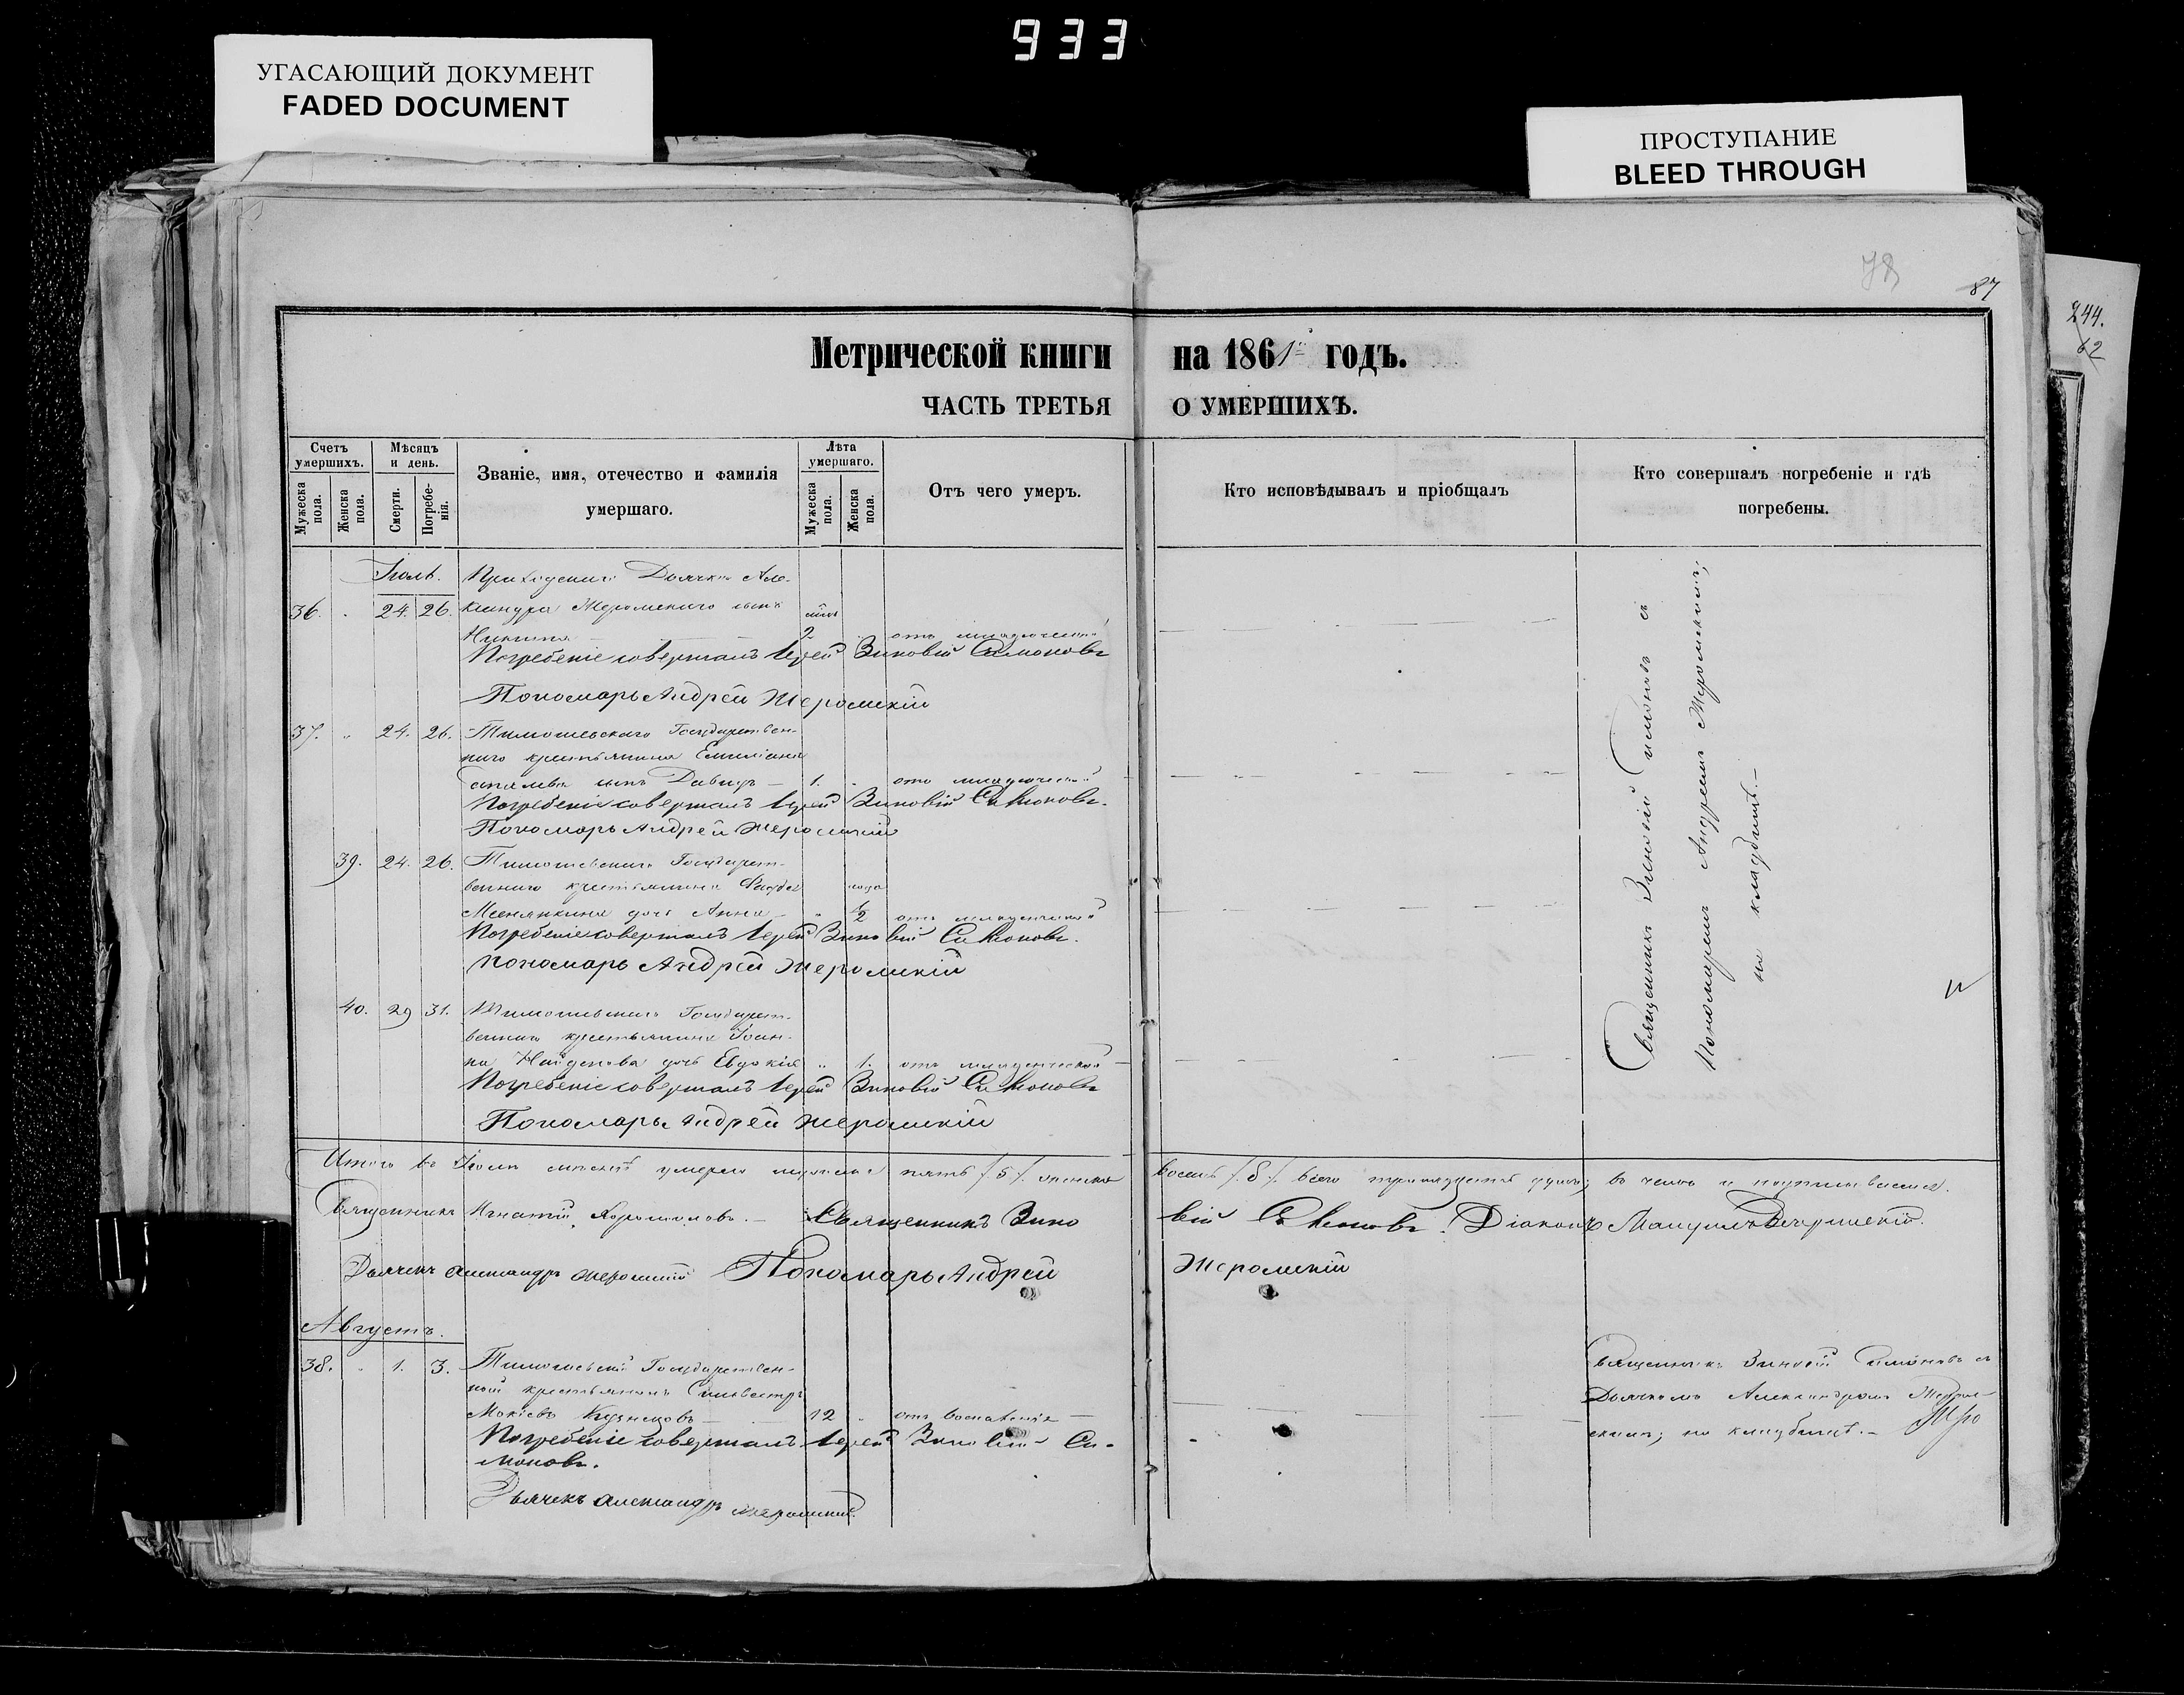 933
УГАСАЮЩИЙ ДОКУМЕНТ
FADED DOCUMENT
ПРОСТУПАНИЕ
BLEED THROUGH
78
87
244.
62
Метрической книги на 1861 годъ.
ЧАСТЬ ТРЕТЬЯ О УМЕРШИХЪ.
Счетъ умершихъ.
Мужеска пола.
Женска пола.
Мѣсяцъ и день.
Смерти.
Погребе-
нія.
Званіе, имя, отечество и фамилія
умершаго.
Лѣта умершаго.
Мужеска пола.
Женска пола.
Отъ чего умеръ.
Кто исповѣдывалъ и пріобщалъ
Кто совершалъ погребеніе и гдѣ
погребены.
Іюль. Приходскаго Дьячка Але-
36. 24. 26. ксандра Жеромскаго сынъ
Никита 2 отъ младенческой
Погребеніе совершалъ Іерей Зиновій Симоновъ
Пономарь Андрей Жеромскій
37. " 24. 26. Тимошевскаго Государствен-
наго крестьянина Емиліана
сынъ Давидъ 1. отъ младенческой
Погребеніе совершалъ Іерей Зиновій Симоновъ.
Пономарь Андрей Жеромскій
39. 24. 26. Тимошевскаго Государст-
веннаго крестьянина
дочь Анна " 1/2 отъ младенческой
Погребеніе совершалъ Іерей Зиновій Симоновъ.
Пономарь Андрей Жеромскій
40. 29 31. Тимошевскаго Государст-
веннаго крестьянина Іоан-
на Найденова дочь Евдокія " 1. отъ младенческой
Погребеніе совершалъ Іерей Зиновій Симоновъ
Пономарь Андрей Жеромскій
Священникъ Зиновій Симоновъ съ
Пономаремъ Андреемъ Жеромскимъ;
на кладбищѣ.
Итого въ Іюлѣ мѣсяцѣ умерло мужеска пять /5/. женска восемь /8/. всего тринадцать душъ; въ чемъ и подписываемся.
Священникъ Игнатій Священникъ Зино вій Симоновъ. Діаконъ
Дьячекъ Александръ Жеромскій Пономарь Андрей Жеромскій
Августъ.
38. " 1. 3. Тимошевскій Государствен-
ный крестьянинъ Сильвестръ
Мокіевъ Кузнецовъ 12 " отъ воспаленія
Погребеніе совершалъ Іерей Зиновій Си-
моновъ.
Дьячекъ Александръ Жеромскій.
Священникъ Зиновій Симоновъ съ
Дьячкомъ Александромъ Жером-
скимъ; на кладбищѣ.